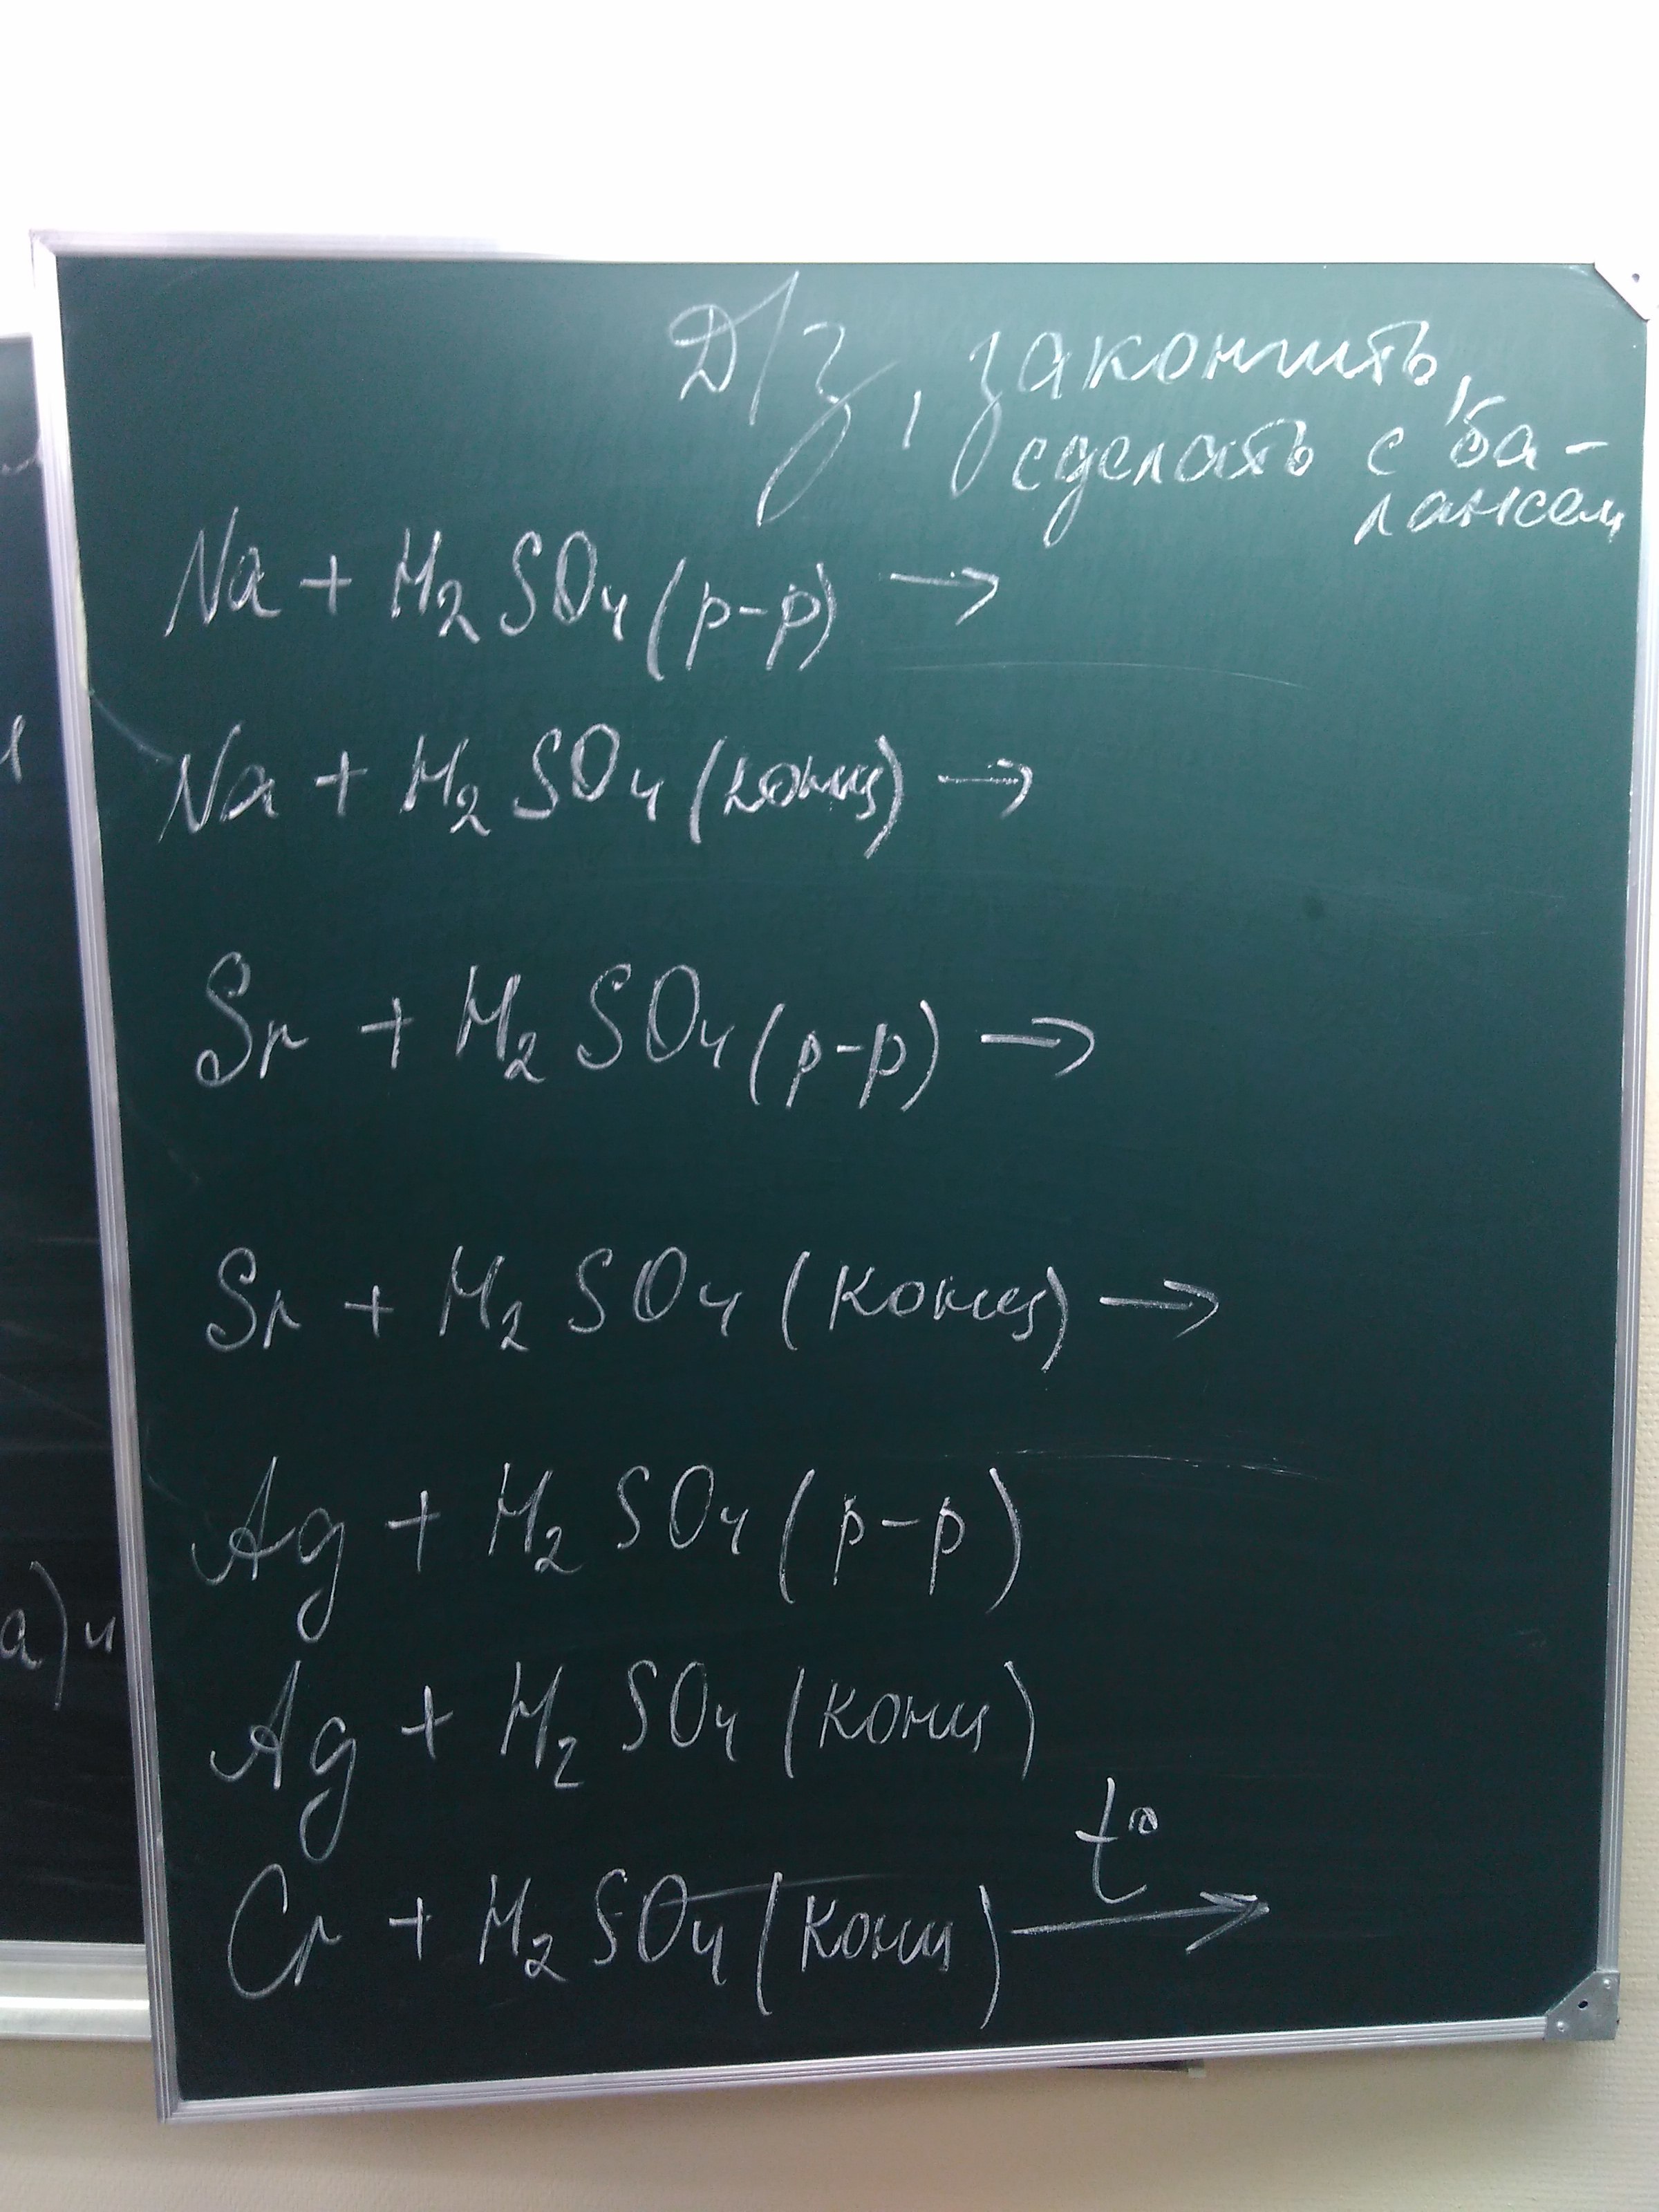 Д/з, закончить,
сделать с ба-
лансом
Na + H₂SO₄ (р-р) →
Na + H₂SO₄ (конц) →
Sr + H₂SO₄ (р-р) →
Sr + H₂SO₄ (конц) →
Ag + H₂SO₄ (р-р)
Ag + H₂SO₄ (конц)
t°
Cr + H₂SO₄ (конц) →
а) и